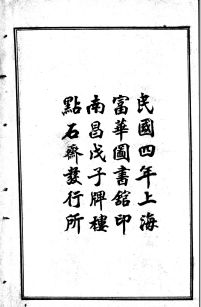 民國四年上海
富華圖書館印
南昌戊子牌樓
點石齋發行所